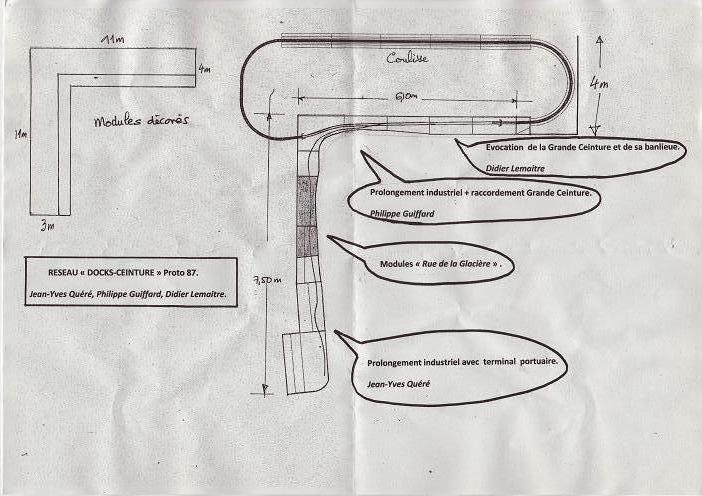 11m
4m
11m
Modules décorés
3m
Coulisse
4m
7,50m
Evocation de la Grande Ceinture et de sa banlieue.
Didier Lemaitre
Prolongement industriel + raccordement Grande Ceinture.
Philippe Guiffard
Modules « Rue de la Glacière » .
RESEAU « DOCKS-CEINTURE » Proto 87.
Jean-Yves Quéré, Philippe Guiffard, Didier Lemaitre.
Prolongement industriel avec terminal portuaire.
Jean-Yves Quéré